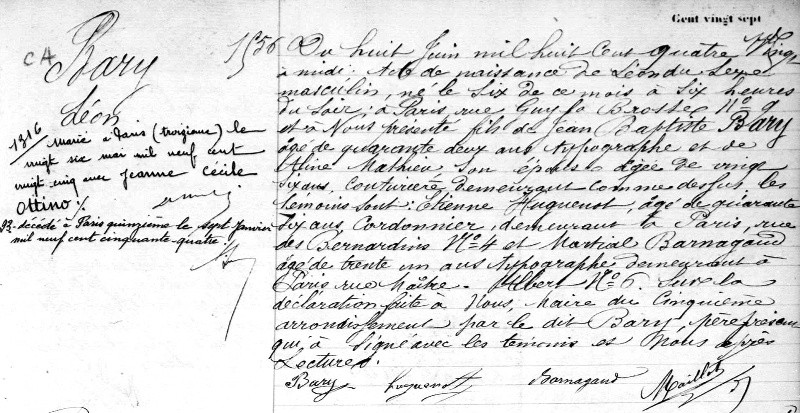 Cent vingt sept
C4
Bary
Léon
1556
1316
marié à Paris (troisième) le
vingt six mai mil neuf cent
vingt cinq avec Jeanne Cécile
Ottino ./.
décédé à Paris quinzième le sept Janvier
mil neuf cent cinquante-quatre
Du huit Juin mil huit Cent quatre Vingt
à midi: Acte de naissance de Léon du Sexe
masculin, né le Six de ce mois à Six heures
du Soir; à Paris, rue Guy la Brosse No 9
et à Nous présenté fils de Jean Baptiste Bary
âgé de quarante deux ans Typographe et de
Mathieu Son épouse âgée de vingt
Six ans, Couturière, demeurant comme dessus, les
témoins sont: Etienne Huguenot, âgé de quarante
Six ans, Cordonnier, demeurant à Paris, rue
des Bernardins No 4 et Martial Barnagaud
âgé de trente un ans Typographe demeurant à
Paris rue Maître - Albert No 6. Sur la
déclaration faite à Nous, Maire du Cinquième
arrondissement par le dit Bary, père présent
qui, à Signé avec les témoins et Nous après
Lecture.
Bary huguenott Barnagaud Maillot